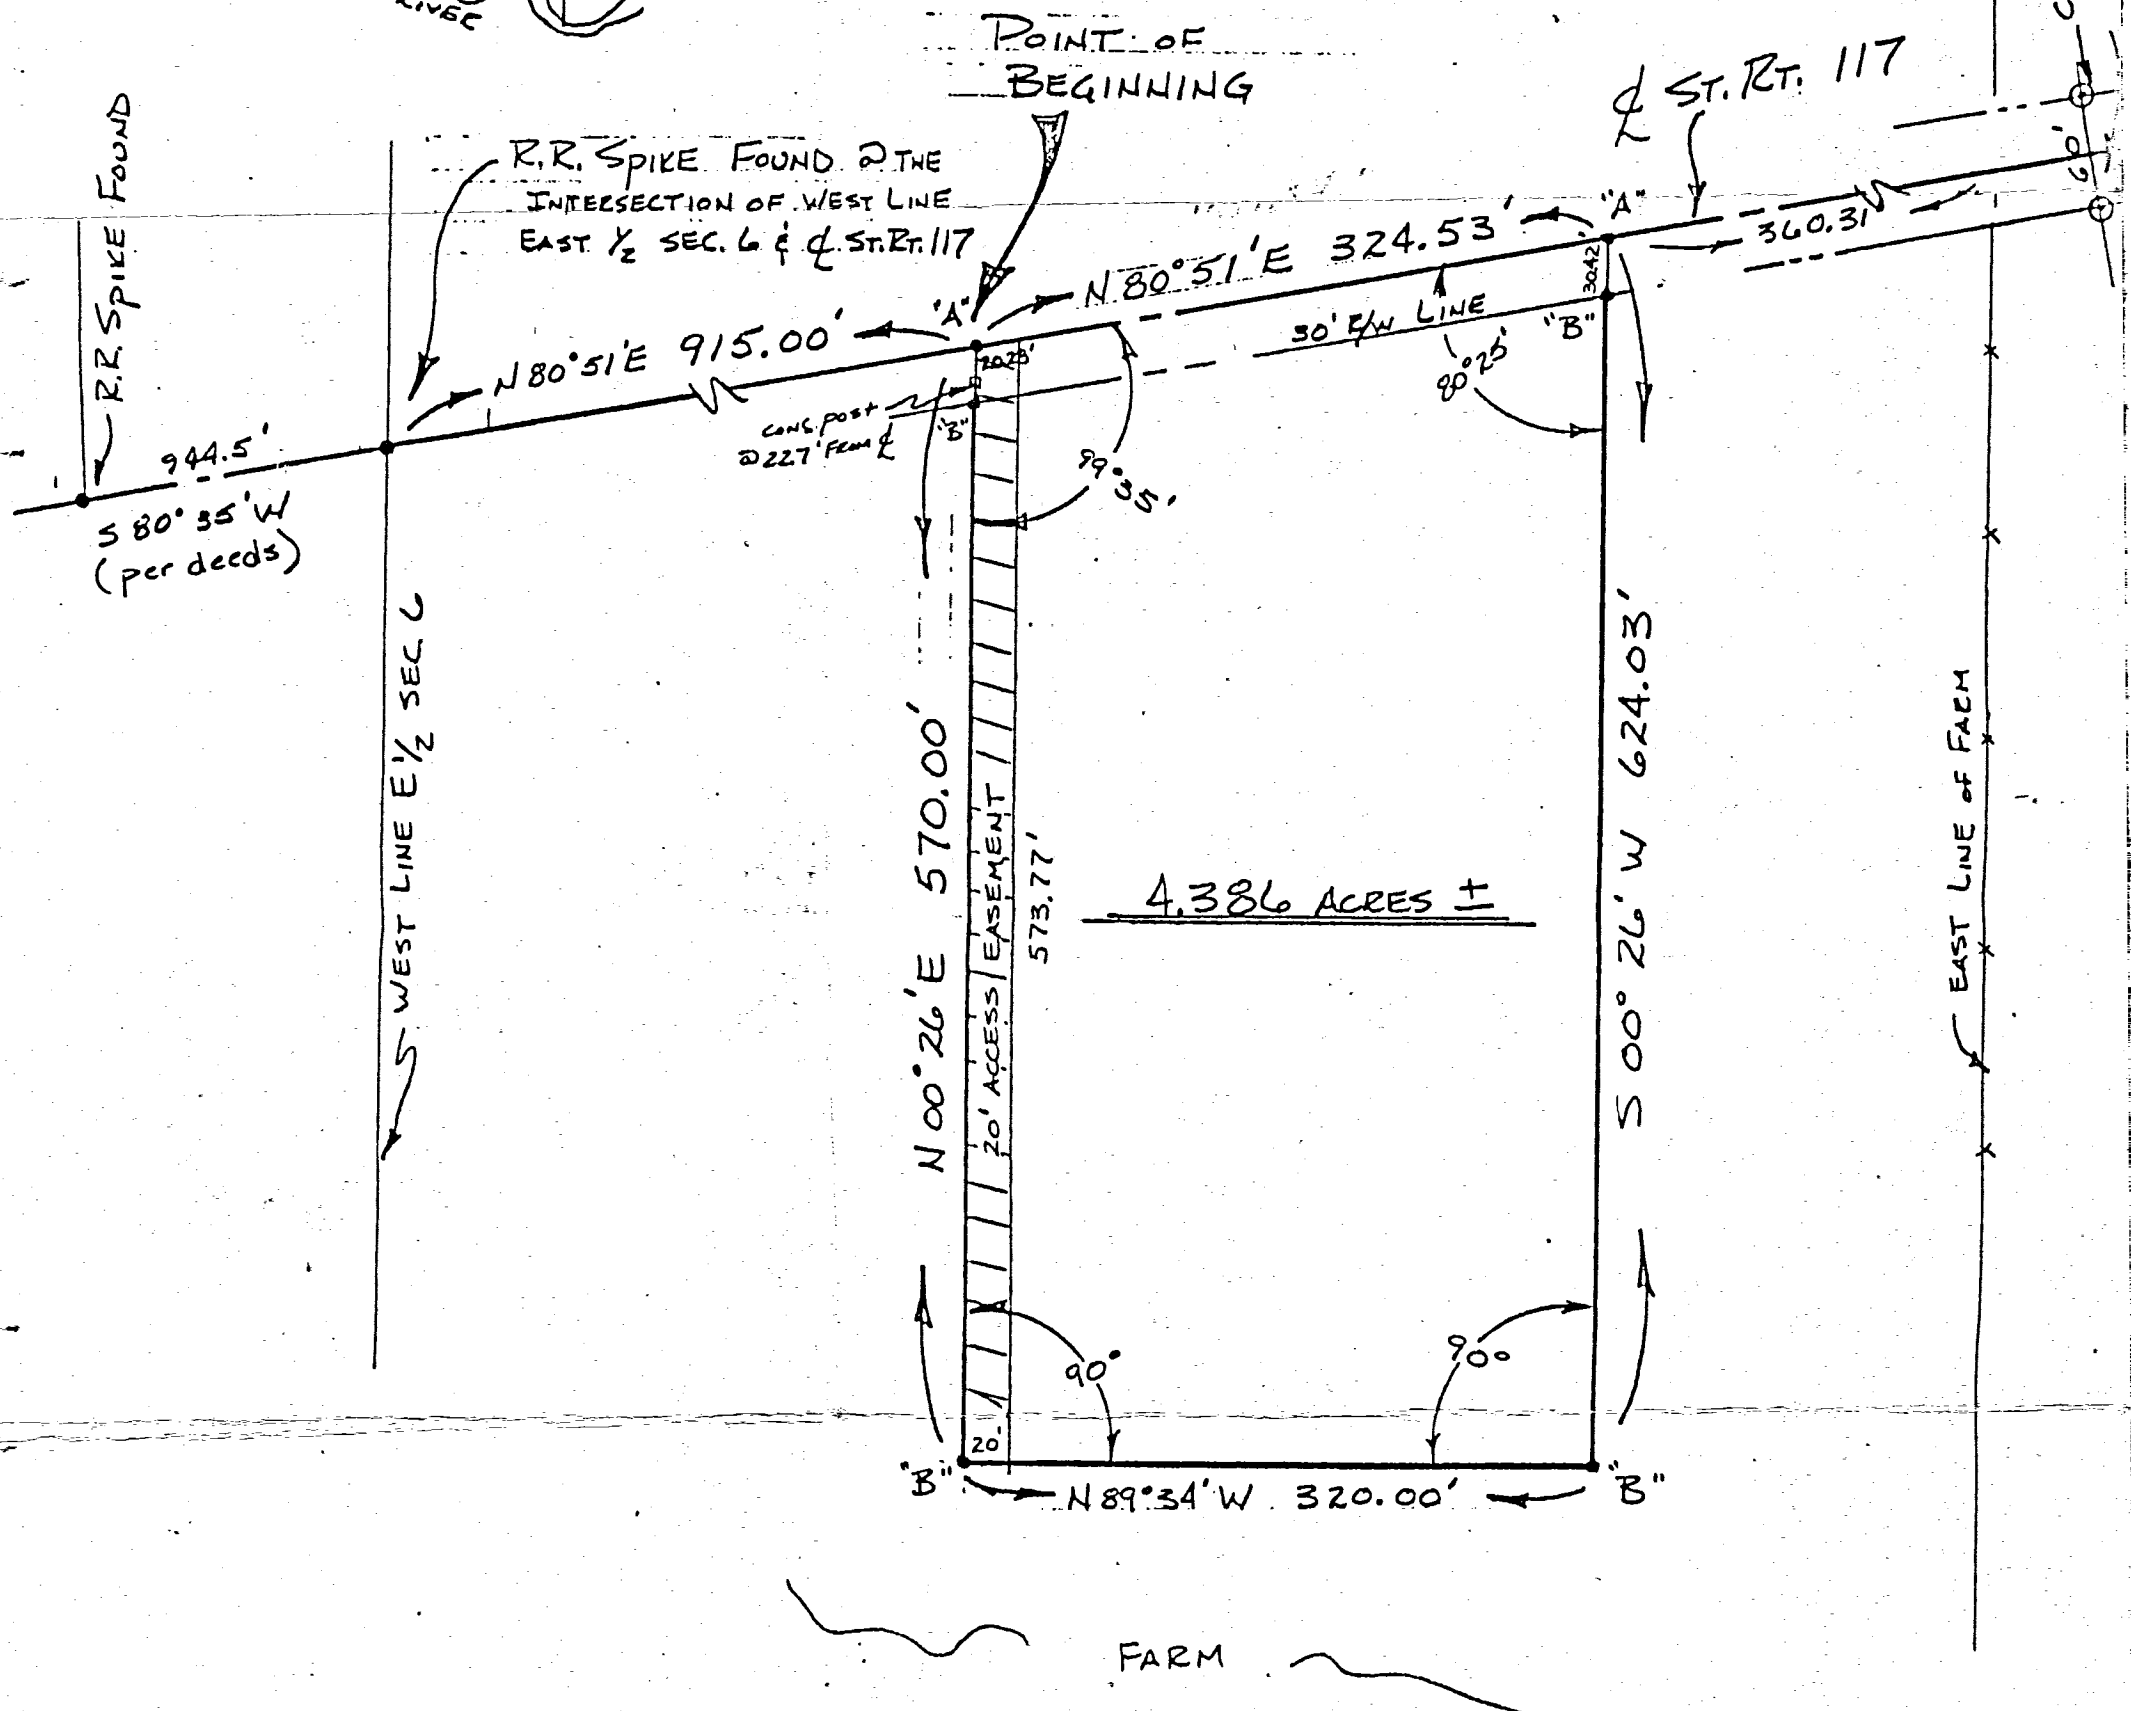 RIVER
POINT OF
BEGINNING
℄ ST. RT. 117
R.R. SPIKE FOUND
R.R. SPIKE FOUND @ THE
INTERSECTION OF WEST LINE
EAST ½ SEC. 6 & ℄ ST. RT. 117
60'
"A"
N 80°51'E 324.53'
360.31'
30.42'
"A"
N 80°51'E 915.00'
20.28'
30' R/W LINE
"B"
80°25'
CONC. POST
@ 22.7' FROM ℄
"B"
944.5'
S 80°35'W
(per deeds)
99°35'
WEST LINE E ½ SEC. 6
N 00°26'E 570.00'
20' ACCESS EASEMENT
573.77'
4.386 ACRES ±
S 00°26'W 624.03'
EAST LINE OF FARM
90°
90°
20'
"B"
N 89°34'W 320.00'
"B"
FARM